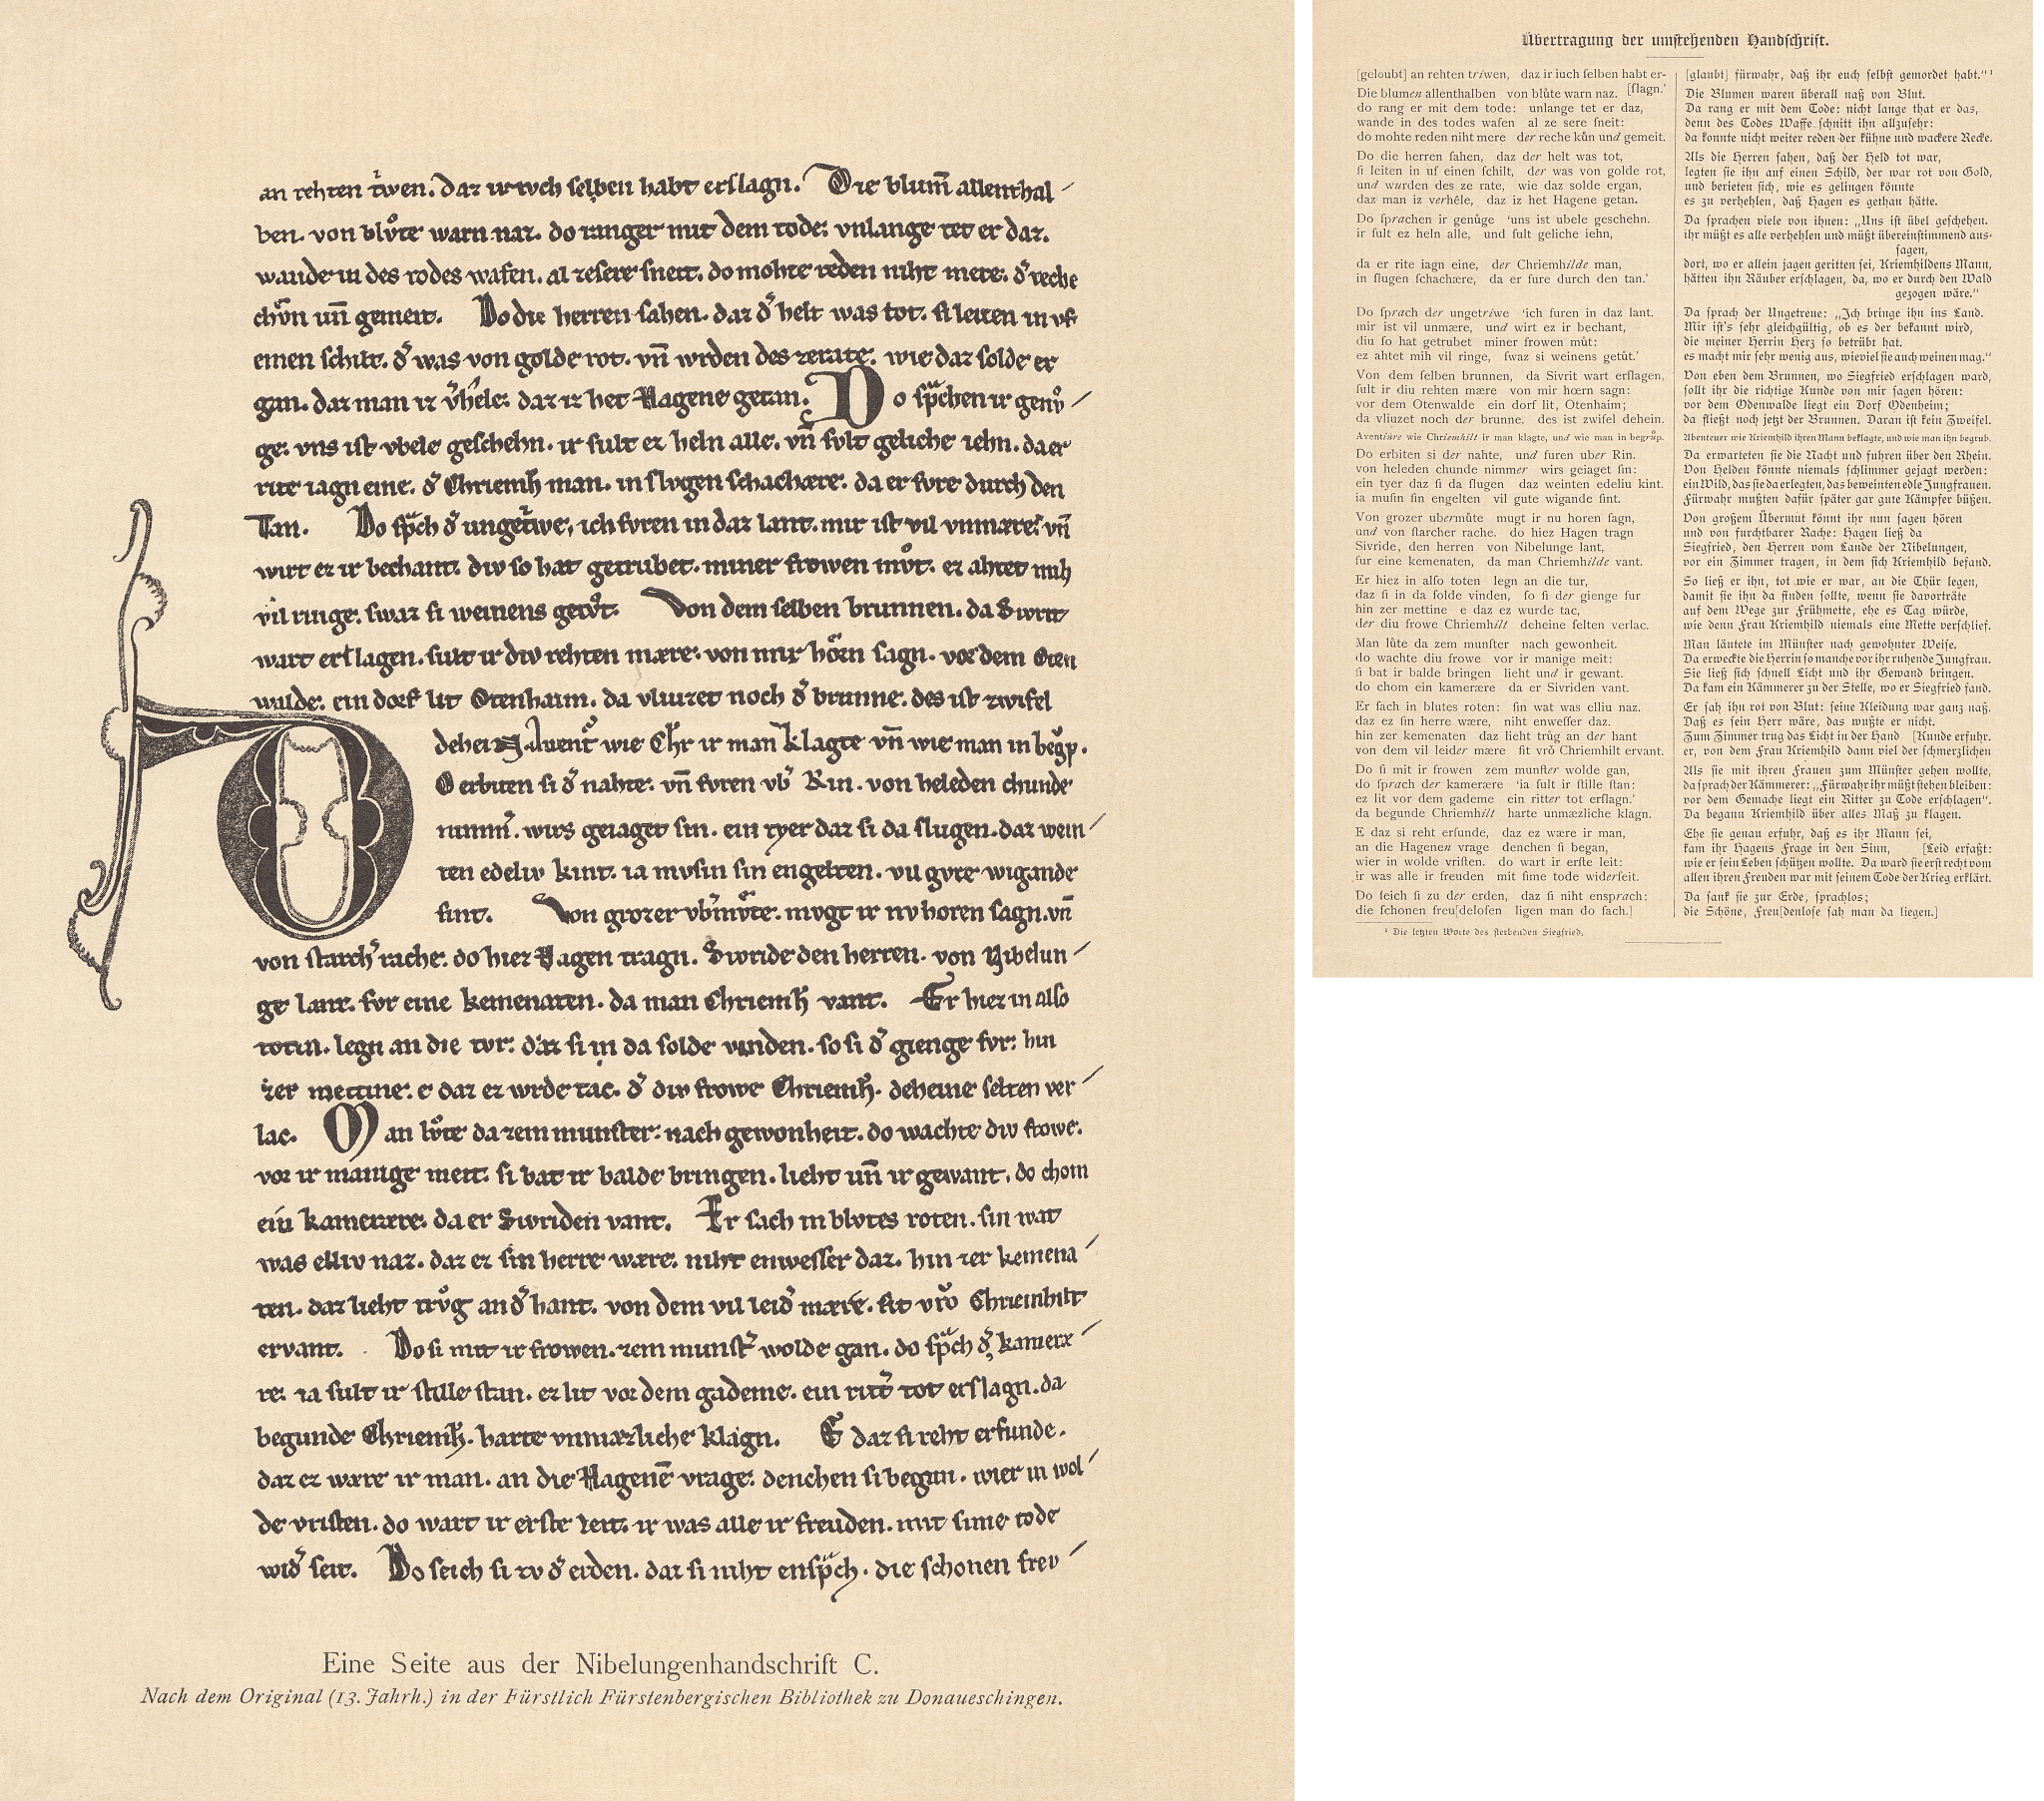 an rehten tͥwen. daz ir ivch ſelben habt erſlagn. Die blum̄ allenthal
ben. von blvͦte warn naz. do ranger mit dem tode: vnlange tet er daz.
wande in des todes wafen. al zeſere ſneit. do mohte reden niht mere. dˀ reche
chvͦn un̄ gemeit. Do die herren ſahen. daz dˀ helt was tot. ſi leiten in vf
einen ſchilt. dˀ was von golde rot. vn̄ wrden des zerate. wie daz ſolde er
gan. daz man iz vˀhele. daz iz het Hagene getan. Do ſpᵃchen ir genvͦ
ge: vns iſt vbele geſchehn. ir ſult ez heln alle. vn̄ ſvlt geliche iehn. da er
rite iagn eine. dˀ Chriemh̄ man. in ſlvgen ſchachære. da er fvre durch den
Tan. Do ſpᵃch dˀ ungetͥwe. ich fvren in daz lant. mir iſt vil vnmære. vn̄
wirt ez ir bechant. div ſo hat getrubet. miner frowen mvͦt. ez ahtet mih
vil ringe. ſwaz ſi weinens getvͦt. Von dem ſelben brunnen. da Sivrit
wart erſlagen. ſult ir div rehten mære. von mir hoͤrn ſagn. vor dem Oten
walde. ein dorf lit Otenhaim. da vliuzet noch dˀ brunne. des iſt zwifel
dehein Auentͥ wie Chr ir man klagte vn̄ wie man in begrvͦp.
O erbiten ſi dˀ nahte. vn̄ fvren vbˀ Rin. von heleden chunde
nimmˀ. wirs geiaget ſin. ein tyer daz ſi da ſlugen. daz wein
ten edeliv kint. ia mvſin ſin engelten. vil gvte wigande
ſint. Von grozer vbˀmvͦte. mvgt ir nv horen ſagn. vn̄
von ſtarchˀ rache. do hiez Hagen tragn. Sivride den herren. von Nibelun
ge lant. fvr eine kemenaten. da man Chriemh̄ vant. Er hiez in alſo
toten. legn an die tvr. daz ſi in da ſolde vinden. ſo ſi dˀ gienge fvr: hin
zer mettine. e daz ez wrde tac. dˀ div frowe Chriemh̄. deheine ſelten ver
lac. Man lvͦte da zem munſter: nach gewonheit. do wachte div frowe.
vor ir manige meit. ſi bat ir balde bringen. lieht un̄ ir gewant. do chom
ein kamerære. da er Sivriden vant. Er ſach in blvtes roten. ſin wat
was elliv naz. daz ez ſin herre wære. niht enweſſer daz. hin zer kemena
ten. daz lieht trvͦg an dˀ hant. von dem vil leidˀ mære. ſit vrͦo Chriemhilt
ervant. Do ſi mit ir frowen. zem munſtˀ wolde gan. do ſpᵃch dˀ kameræ
re. ia ſult ir ſtille ſtan. ez lit vor dem gademe. ein rittˀ tot erſlagn. da
begunde Chriemh̄. harte vnmæzliche klagn. E daz ſi reht erfunde.
daz ez wære ir man. an die Hagenē vrage. denchen ſi began. wier in wol
de vriſten. do wart ir erſte leit. ir was alle ir freuden. mit ſime tode
widˀ ſeit. Do ſeich ſi zv dˀ erden. daz ſi niht enſpᵃch. die ſchonen frev
Eine Seite aus der Nibelungenhandſchrift C.
Nach dem Original (13. Jahrh.) in der Fürſtlich Fürſtenbergiſchen Bibliothek zu Donaueſchingen.
Übertragung der umſtehenden Handſchrift.
[geloubt] an rehten triwen, daz ir iuch ſelben habt er-
Die blumen allenthalben von blůte warn naz. [ſlagn.’
do rang er mit dem tode: unlange tet er daz,
wande in des todes wafen al ze sere ſneit:
do mohte reden niht mere der reche kůn und gemeit.
Do die herren ſahen, daz der helt was tot,
ſi leiten in uf einen ſchilt, der was von golde rot,
und wurden des ze rate, wie daz solde ergan,
daz man iz verhêle, daz iz het Hagene getan.
Do ſprachen ir genůge ‘uns ist ubele geschehn.
ir ſult ez heln alle, und ſult geliche iehn,
da er rite iagn eine, der Chriemhilde man,
in ſlugen ſchachære, da er fure durch den tan.’
Do ſprach der ungetriwe ‘ich furen in daz lant.
mir ist vil unmære, und wirt ez ir bechant,
diu ſo hat getrubet miner frowen můt:
ez ahtet mih vil ringe, ſwaz si weinens getůt.’
Von dem ſelben brunnen, da Sivrit wart erſlagen,
ſult ir diu rehten mære von mir hœrn sagn:
vor dem Otenwalde ein dorf lit, Otenhaim;
da vliuzet noch der brunne. des ist zwifel dehein.
Aventiure wie Chriemhilt ir man klagte, und wie man in begrůp.
Do erbiten si der nahte, und furen uber Rin.
von heleden chunde nimmer wirs geiaget ſin:
ein tyer daz ſi da ſlugen daz weinten edeliu kint.
ia muſin ſin engelten vil gute wigande ſint.
Von grozer ubermůte mugt ir nu horen ſagn,
und von ſtarcher rache. do hiez Hagen tragn
Sivride, den herren von Nibelunge lant,
fur eine kemenaten, da man Chriemhilde vant.
Er hiez in alſo toten legn an die tur,
daz ſi in da ſolde vinden, ſo ſi der gienge fur
hin zer mettine e daz ez wurde tac,
der diu frowe Chriemhilt deheine ſelten verlac.
Man lůte da zem munſter nach gewonheit.
do wachte diu frowe vor ir manige meit:
ſi bat ir balde bringen lieht und ir gewant.
do chom ein kamerære da er Sivriden vant.
Er ſach in blutes roten: ſin wat was elliu naz.
daz ez ſin herre wære, niht enweſſer daz.
hin zer kemenaten daz lieht trůg an der hant
von dem vil leider mære ſit vrŏ Chriemhilt ervant.
Do ſi mit ir frowen zem munſter wolde gan,
do ſprach der kamerære ‘ia ſult ir ſtille ſtan:
ez lit vor dem gademe ein ritter tot erſlagn.’
da begunde Chriemhilt harte unmæzliche klagn.
E daz si reht erfunde, daz ez wære ir man,
an die Hagenen vrage denchen ſi began,
wier in wolde vriſten. do wart ir erſte leit:
ir was alle ir freuden mit ſime tode widerſeit.
Do ſeich ſi zu der erden, daz ſi niht ensprach:
die ſchonen freu[deloſen ligen man do ſach.]
[glaubt] fürwahr, daß ihr euch ſelbſt gemordet habt.“¹
Die Blumen waren überall naß von Blut.
Da rang er mit dem Tode: nicht lange that er das,
denn des Todes Waffe ſchnitt ihn allzuſehr:
da konnte nicht weiter reden der kühne und wackere Recke.
Als die Herren ſahen, daß der Held tot war,
legten ſie ihn auf einen Schild, der war rot von Gold,
und berieten ſich, wie es gelingen könnte
es zu verhehlen, daß Hagen es gethan hätte.
Da ſprachen viele von ihnen: „Uns iſt übel geſchehen.
ihr müßt es alle verhehlen und müßt übereinſtimmend aus-
ſagen,
dort, wo er allein jagen geritten ſei, Kriemhildens Mann,
hätten ihn Räuber erſchlagen, da, wo er durch den Wald
gezogen wäre.“
Da ſprach der Ungetreue: „Ich bringe ihn ins Land.
Mir iſt’s ſehr gleichgültig, ob es der bekannt wird,
die meiner Herrin Herz ſo betrübt hat.
es macht mir ſehr wenig aus, wieviel ſie auch weinen mag.“
Von eben dem Brunnen, wo Siegfried erſchlagen ward,
ſollt ihr die richtige Kunde von mir ſagen hören:
vor dem Odenwalde liegt ein Dorf Odenheim;
da fließt noch jetzt der Brunnen. Daran iſt kein Zweifel.
Abenteuer wie Kriemhild ihren Mann beklagte, und wie man ihn begrub.
Da erwarteten ſie die Nacht und fuhren über den Rhein.
Von Helden könnte niemals ſchlimmer gejagt werden:
ein Wild, das ſie da erlegten, das beweinten edle Jungfrauen.
Fürwahr mußten dafür ſpäter gar gute Kämpfer büßen.
Von großem Übermut könnt ihr nun ſagen hören
und von furchtbarer Rache: Hagen ließ da
Siegfried, den Herren vom Lande der Nibelungen,
vor ein Zimmer tragen, in dem ſich Kriemhild befand.
So ließ er ihn, tot wie er war, an die Thür legen,
damit ſie ihn da finden ſollte, wenn ſie davorträte
auf dem Wege zur Frühmette, ehe es Tag würde,
wie denn Frau Kriemhild niemals eine Mette verſchlief.
Man läutete im Münſter nach gewohnter Weiſe.
Da erweckte die Herrin ſo manche vor ihr ruhende Jungfrau.
Sie ließ ſich ſchnell Licht und ihr Gewand bringen.
Da kam ein Kämmerer zu der Stelle, wo er Siegfried fand.
Er ſah ihn rot von Blut: ſeine Kleidung war ganz naß.
Daß es ſein Herr wäre, das wußte er nicht.
Zum Zimmer trug das Licht in der Hand [Kunde erfuhr.
er, von dem Frau Kriemhild dann viel der ſchmerzlichen
Als ſie mit ihren Frauen zum Münſter gehen wollte,
da ſprach der Kämmerer: „Fürwahr ihr müßt ſtehen bleiben:
vor dem Gemache liegt ein Ritter zu Tode erſchlagen“.
Da begann Kriemhild über alles Maß zu klagen.
Ehe ſie genau erfuhr, daß es ihr Mann ſei,
kam ihr Hagens Frage in den Sinn, [Leid erfaßt:
wie er ſein Leben ſchützen wollte. Da ward ſie erſt recht vom
allen ihren Freuden war mit ſeinem Tode der Krieg erklärt.
Da ſank ſie zur Erde, ſprachlos;
die Schöne, Freu[denloſe ſah man da liegen.]
¹ Die letzten Worte des ſterbenden Siegfried.